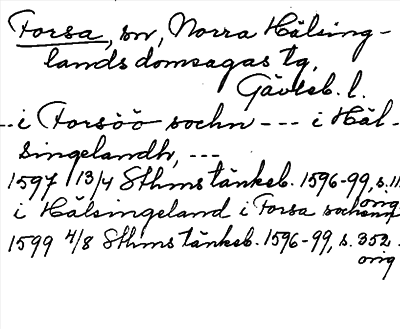 Forsa, sn, Norra Hälsing-
lands domsagas tg,
Gävleb. l.
--i Forsöö sochn --- i Häl-
singelandh, ---
1597 13/4 Sthms tänkeb. 1596-99, s. 11
orig
i Hälsingeland i Forsa sochnn
1599 4/8 Sthms tänkeb. 1596-99, s. 352.
orig